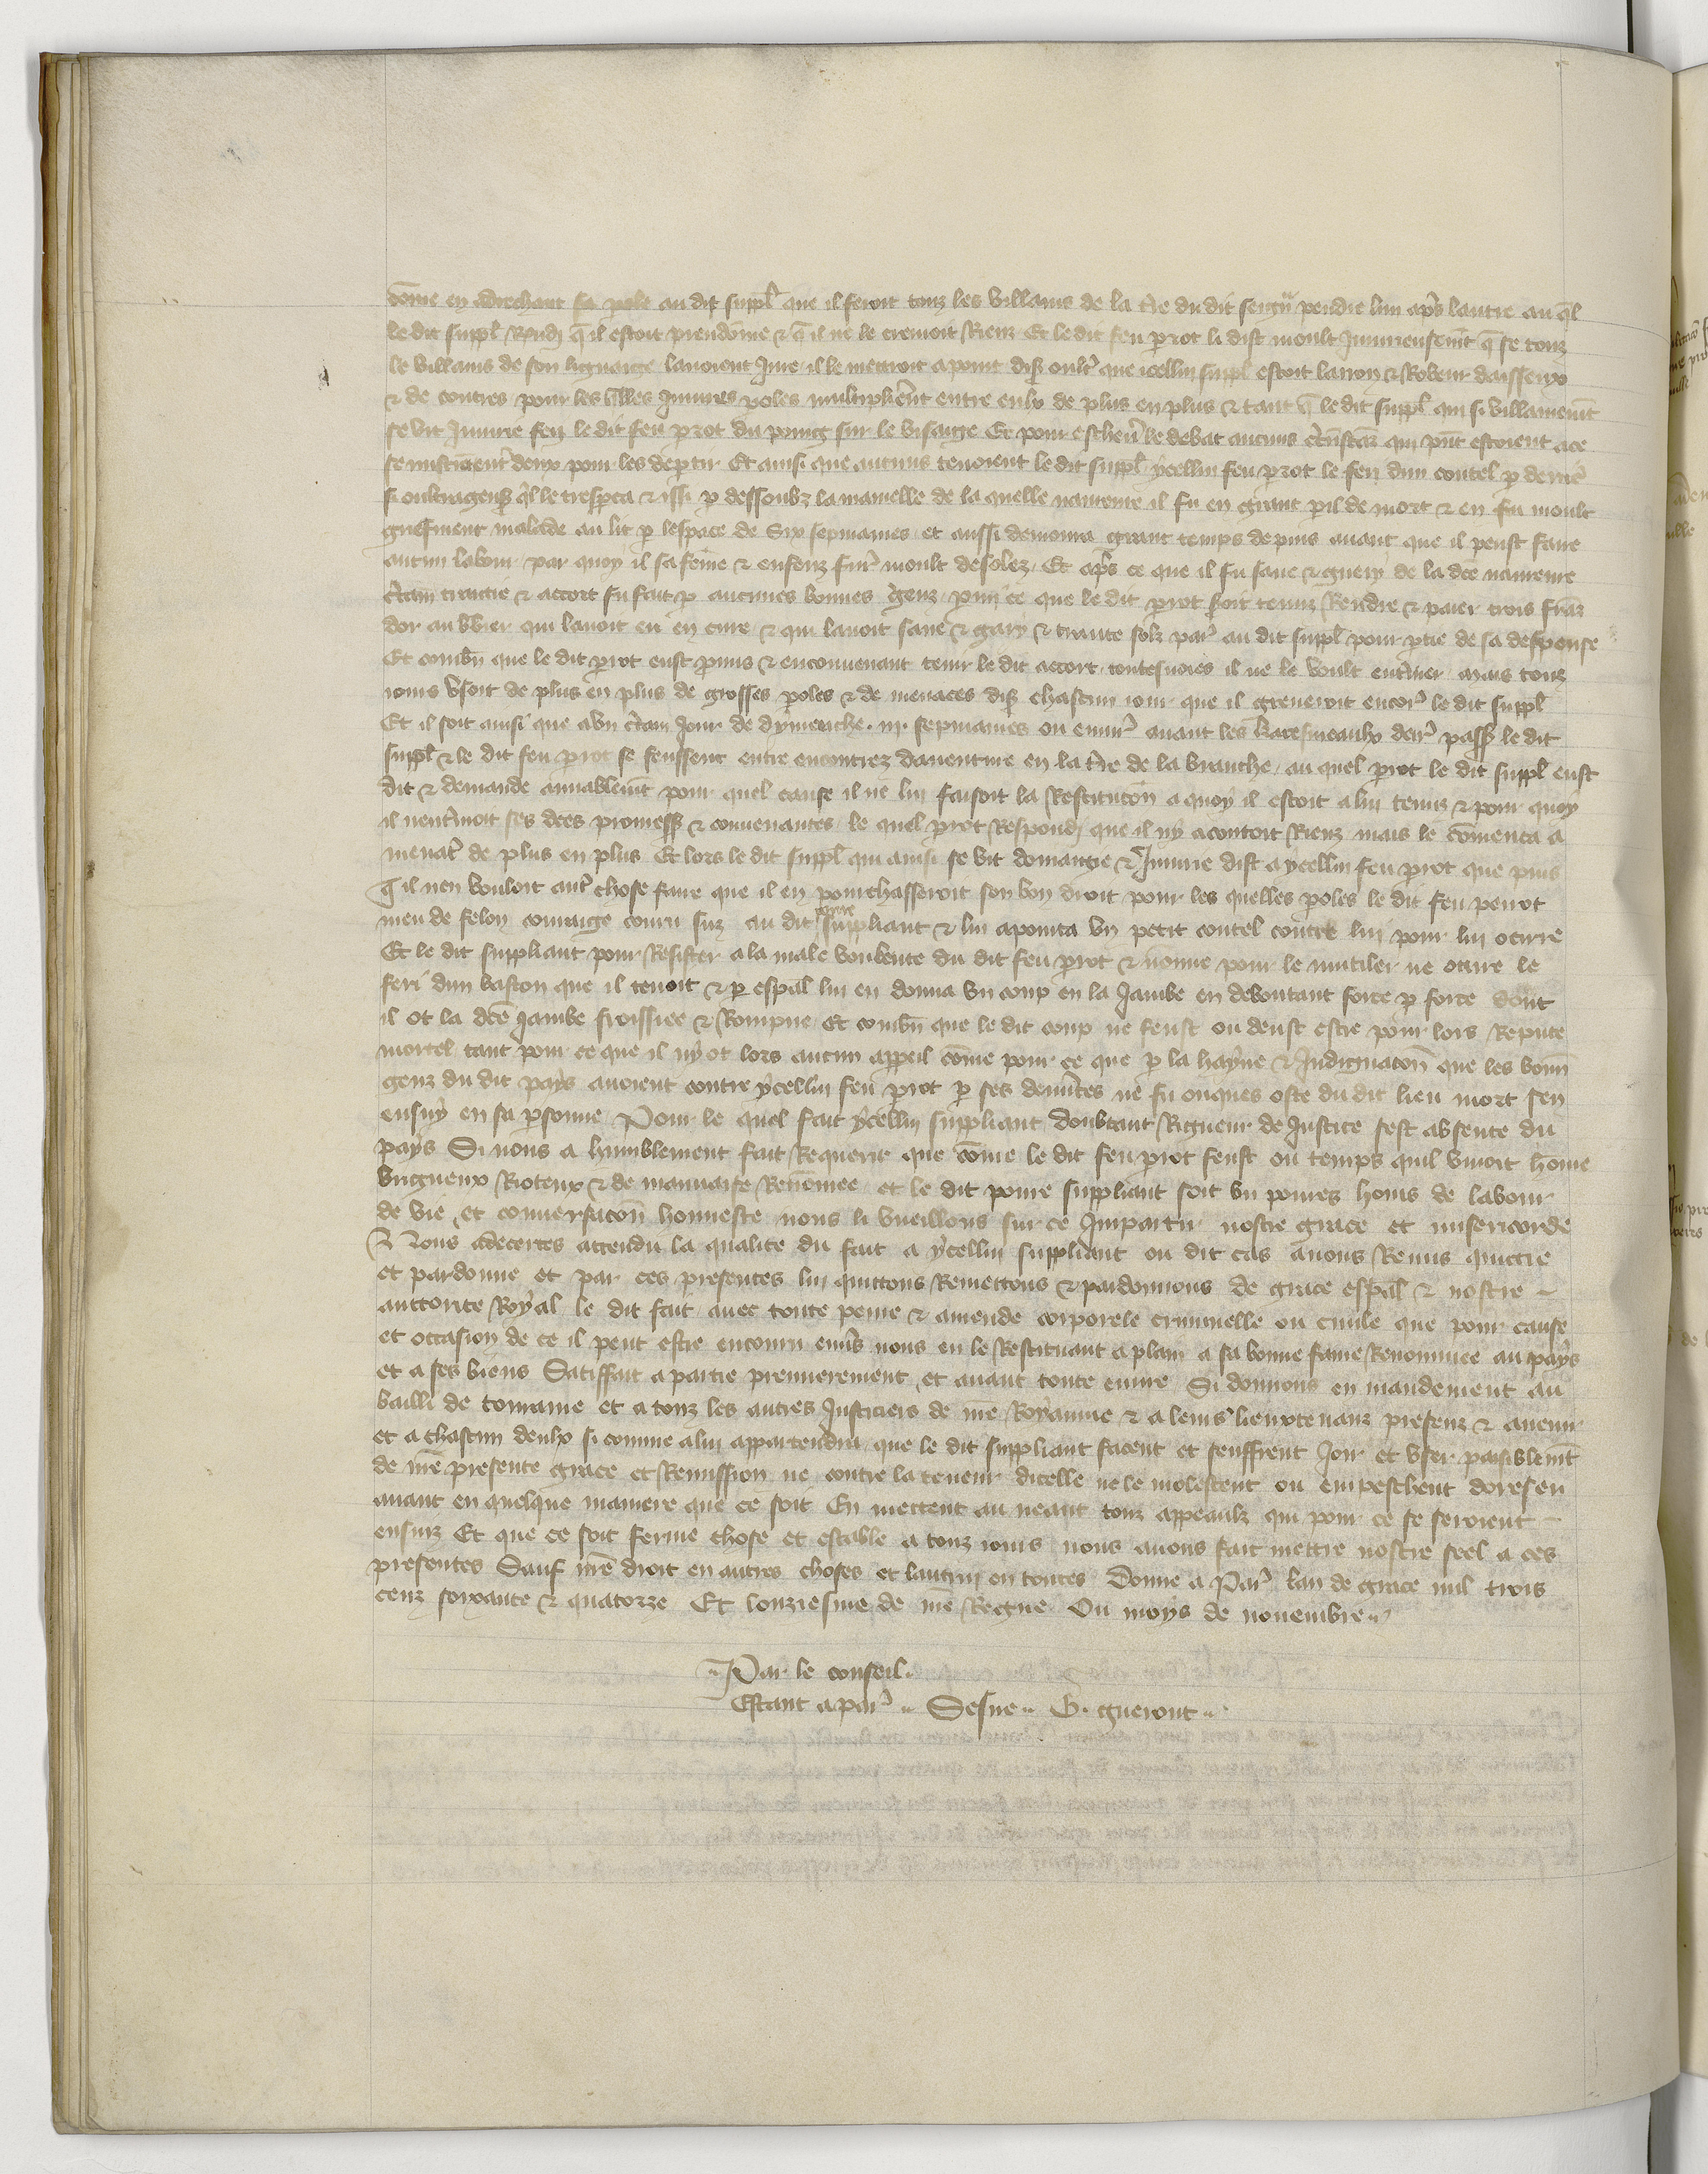 en adrechant sa pole au dit suppl̃ que il feroit touz les villains de la t̃re du dit seign̄r pendre lun ap̃s lautre au q̄l
le dit suppl̃ Rendj q̄ il estoit preudōme & q̄ il ne le cremoit Rienz Et le dit feu p̱rot li dist moult Iniurieusem̄t q̄ se touz
le villains de son lignaige lauoient Jure il le mettroit apoint oult̃ que icellui suppl̃ estoit larron & Robeur
& de contres pour les q̄lles Iniures poles multiplier̃ent entre eulx de plus en plus & tant q̄ le dit suppl̃ qui si villainem̄t
se vit Iniurie feri le dit feu p̱rot du poing sur le visaige Et pour escheu̽ le debat aucuns qui p̄nt estoient ace
se mistrent deux pour les dep̱tir Et ainsi que aucuns tenoient le dit suppl̃ ycellui feu p̱rot le feri dun coutel p̱ derrie᷑
si oultrageuß q̄l le tresp̱ca & issi p̱ dessoubz la mamelle de la quelle naureure il fu en grant p̱il de mort & en fu moult
griefment malade au lit p̱ lespace de Six sepmaines et aussi demoura grant temps depuis auant que il peust faire
aucun labour par quoy il sa fēme & enfenz fur̃ moult desolez Et ap̃s ce que il fu sane & guery de la dc̄e naureure
c̃tain traictie & accort fu fait p̱ aucunes bonnes genz p̱mi ce que le dit p̱rot seroit tenuz Rendre & paier trois fran̄z
dor au b̄bier qui lauoit eu en cure & qui lauoit sane & gary & trante solz par̃ au dit suppl̃ pour p̱tie de sa despense
Et combn̄ que le dit p̱rot eust p̱mis & enconuenant tenir le dit accort toutesuoies il ne le voult ent̃iner mais touz
iours vsoit de plus en plus de grosses p̱oles & de menaces diß chascun iour que il greueroit encor̃ le dit suppl̃
Et il soit ainsi que a vn c̃tain Jour de dymenche iij sepmaines ou enuir̃ auant les karesmeaulx der̃ passß le dit
suppl̃ & le dit feu p̱rot se feussent entre encontrez dauenture en la t̃re de la branche au quel p̱rot le dit suppl̃ eust
dit & demande amiablem̄t pour quel cause il ne lui faisoit la Restitucōn a quoy il estoit a lui tenuz & pour quoy
il nent̃inoit ses dc̄es promessß & conuenances le quel p̱rot Respondj que il ny acontoit Rienz mais le cōmenca a
menac̃ de plus en plus Et lors le dit suppl̃ qui ainsi se vit domaigie & Iniurie dist a ycellui feu p̱rot que puis
q̄ il nen vouloit aut̃ chose faire que il en pourchasseroit son bon droit pour les quelles p̱oles le dit feu perrot
meu de felon couraige couru suz au dit poure suppliant & lui apointa vn petit coutel contre lui pour lui occirre
Et le dit suppliant pour Resister a la male voulente du dit feu p̱rot & nonne pour le mutiler ne occire le
feri dun baston que il tenoit & p̱ espāl lui en donna vn coup en la Jambe en deboutant force p̱ force dont
il ot la dc̄e Jambe froissiee & Rompue Et combn̄ que le dit coup ne feust ou deust estre pour lors Repute
mortel tant pour ce que il ny ot lors aucun app̱eil cōme pour ce que p̱ la hayne & Indignacōn que les bonn̄
genz du dit pays auoient contre ycellui feu p̱rot p̱ ses demerites ne fu onques oste du dit lieu mort sen
ensuy en sa p̱sonne Pour le quel fait ycellui suppliant doubtant Rigueur de Justice sest absente du
pays Si nous a humblement fait Requerir que cōme le dit feu p̱rot feust ou temps quil viuoit home
brigueux Rioteux & de mauuaise Renōmee et le dit poure suppliant soit vn poures homs de labour
de vie et conuersacōn honneste nous li vueillons sur ce Impartir nostre grace et misericorde
Nous adecertes attendu la qualite du fait a ycellui suppliant ou dit cas auons Remis quictie
et pardonne et par ces presentes lui quittons Remettons & pardonnons de grace espāl & nostre
auctorite Royal le dit fait auec toute peine & amende corporele criminelle ou ciuile que pour cause
et occasion de ce il peut estre encouru enu̽s nous en le Restituant a plain a sa bonne fame Renommee au pays
et a ses biens Satisffait a partie premierement et auant toute euure Si donnons en mandement au
bailli de touraine et a touz les autres Justiciers de nr̄e Royaume & a leurs lieuxtenanz presenz & auenir
et a chascun deulx si comme a lui appartendra que le dit suppliant facent et seuffrent Joir et vser paisiblem̄t
de nr̄e presente grace et Remission ne contre la teneur dicelle ne le molestent ou empeschent doresen
auant en quelque maniere que ce soit En mettent au neant touz appeaulz qui pour ce se seroient
ensuiz Et que ce soit ferme chose et estable a touz iours nous auons fait mettre nostre seel a ces
presentes Sauf nr̄e droit en autres choses et lautrui en toutes Donne a Par̃ lan de grace mil trois
cenz soixante & quatorze Et lonziesme de nr̄e Regne Ou moys de nouembre
Par le conseil
Estant a par̃ Sesne G. gueront